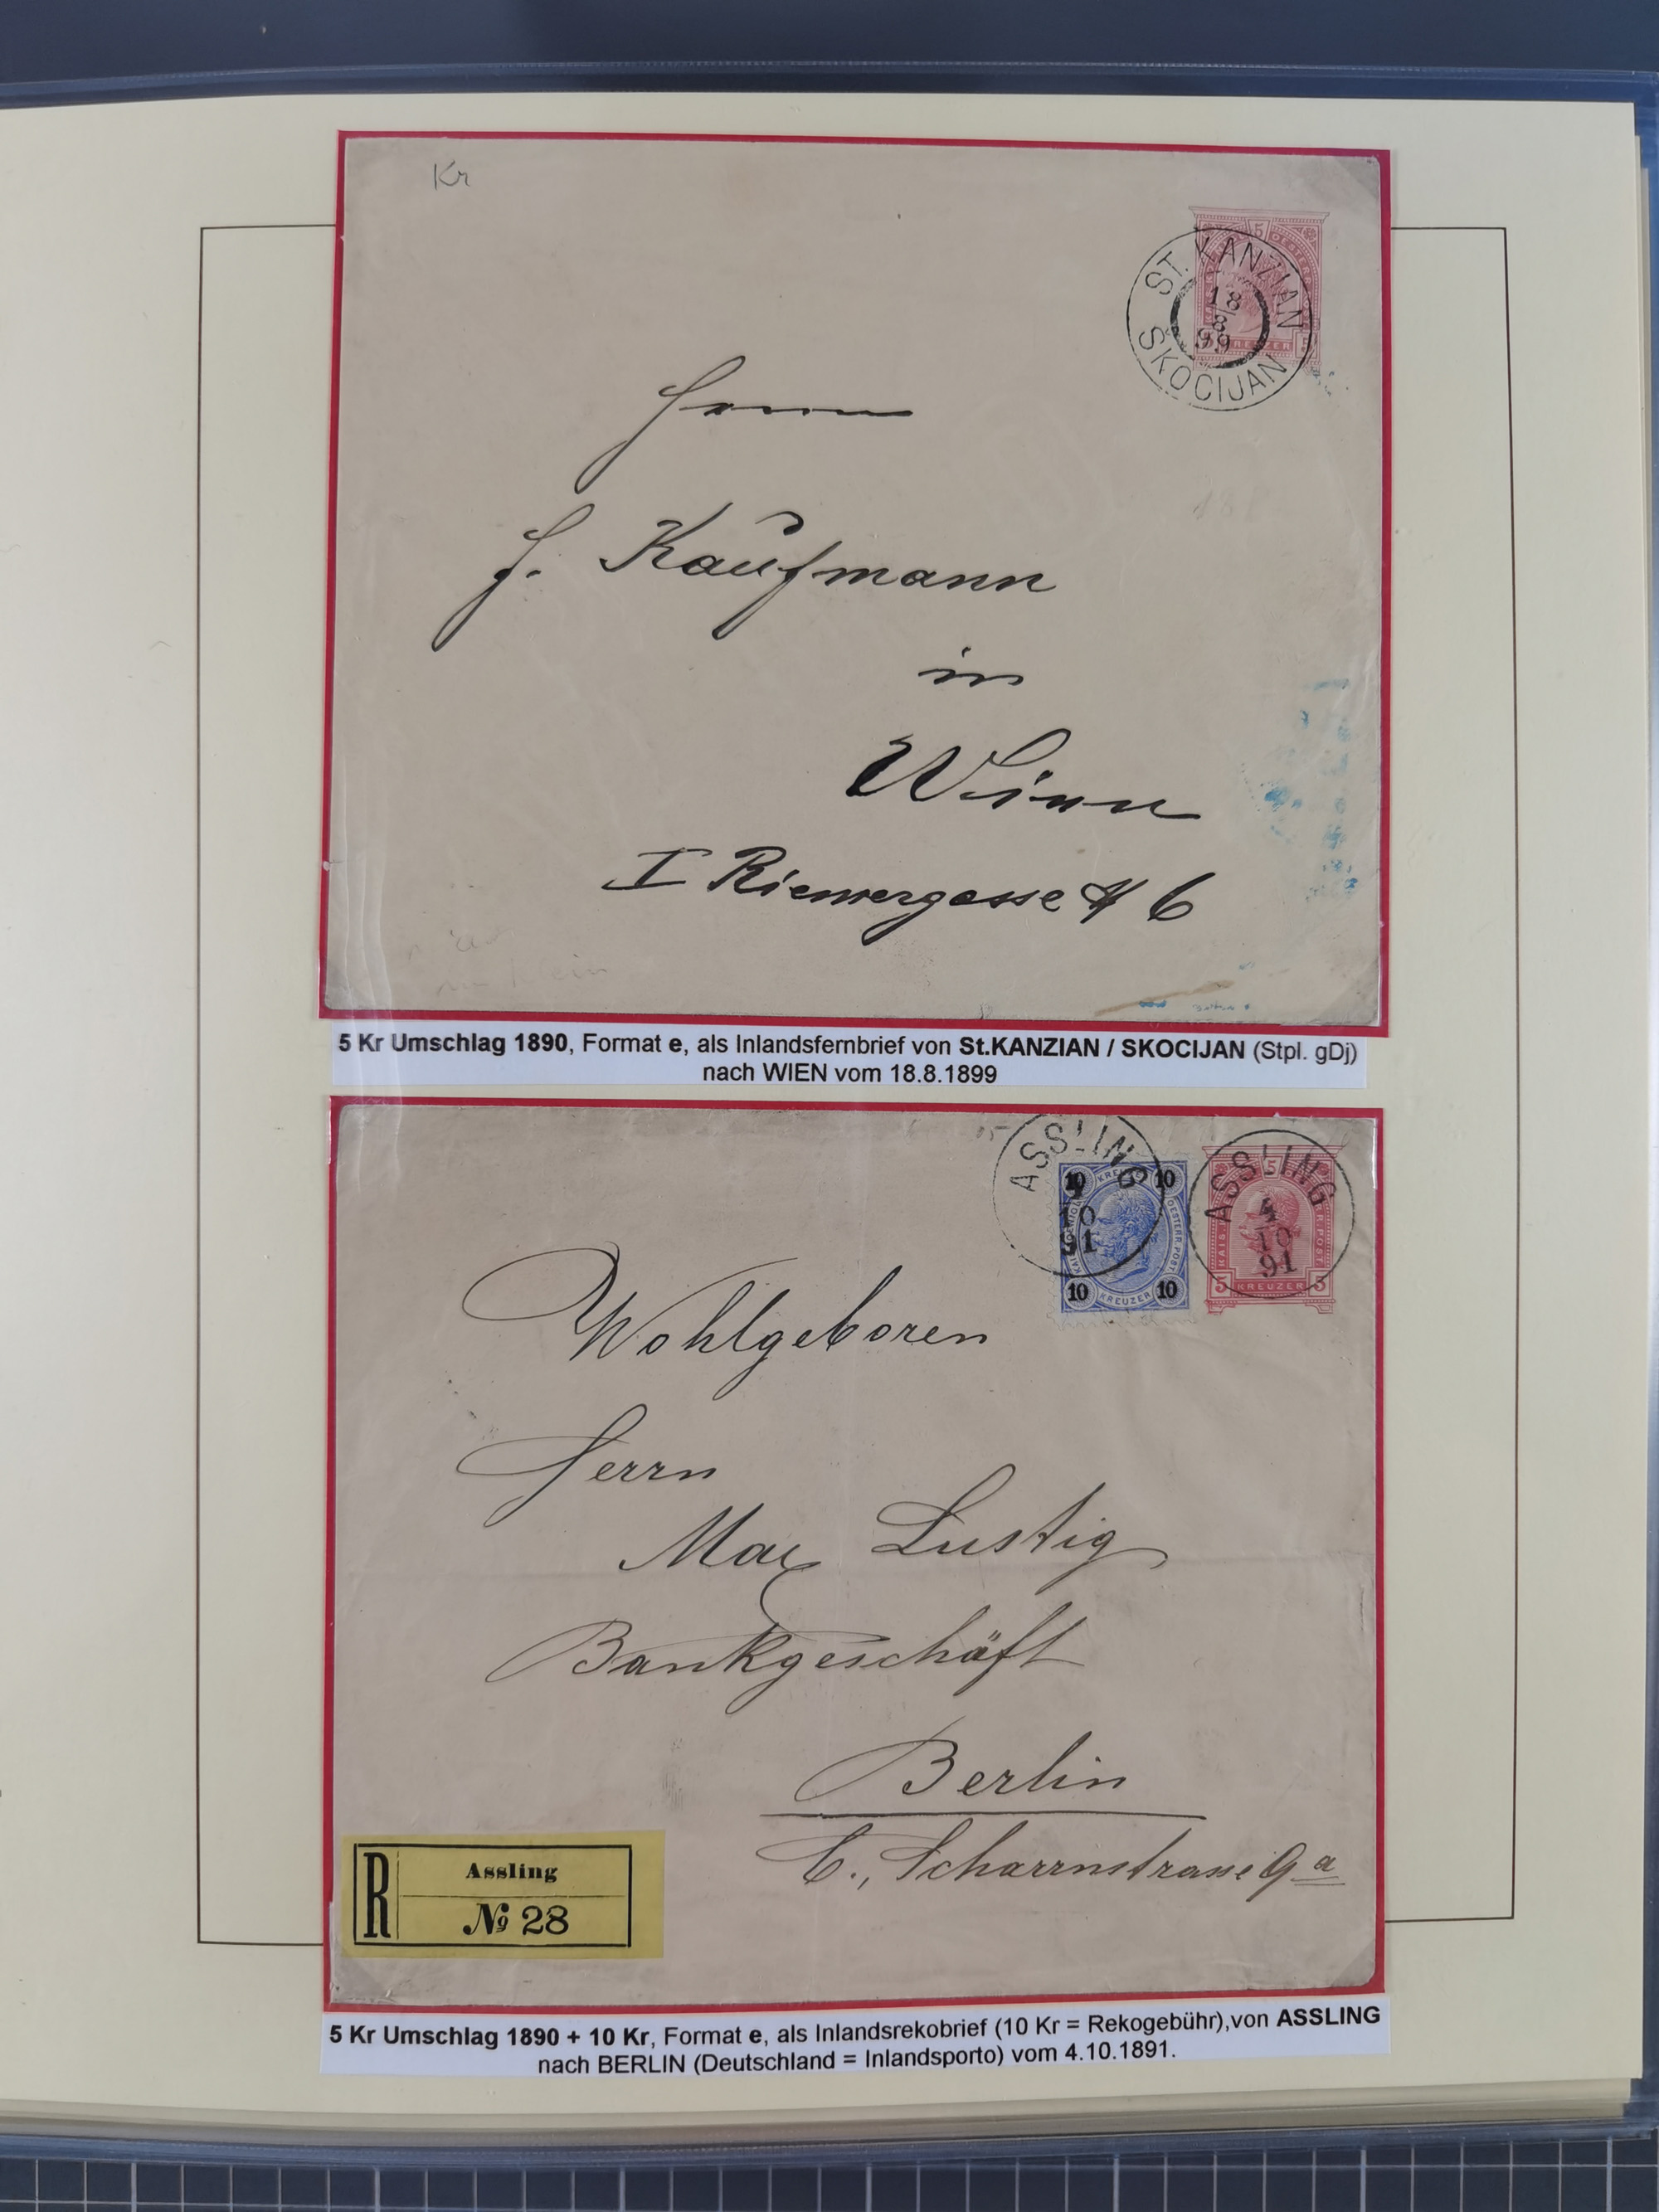 Kr
5
ST. KANZIAN
18
8
99
KREUZER
ŠKOCIJAN
Herrn
J. Kaufmann
in
Wien
I Riemergasse № 6
5 Kr Umschlag 1890, Format e, als Inlandsfernbrief von St.KANZIAN / SKOCIJAN (Stpl. gDj)
nach WIEN vom 18.8.1899
ASSLING
4
10
91
10 KREUZER 10
OESTERR. POST
10 KREUZER 10
ASSLING
4
10
91
5
5 KREUZER 5
Wohlgeboren
Herrn
Max Lustig
Bankgeschäft
Berlin
C., Scharrnstrasse 9a
R
Assling
№ 28
5 Kr Umschlag 1890 + 10 Kr, Format e, als Inlandsrekobrief (10 Kr = Rekogebühr),von ASSLING
nach BERLIN (Deutschland = Inlandsporto) vom 4.10.1891.